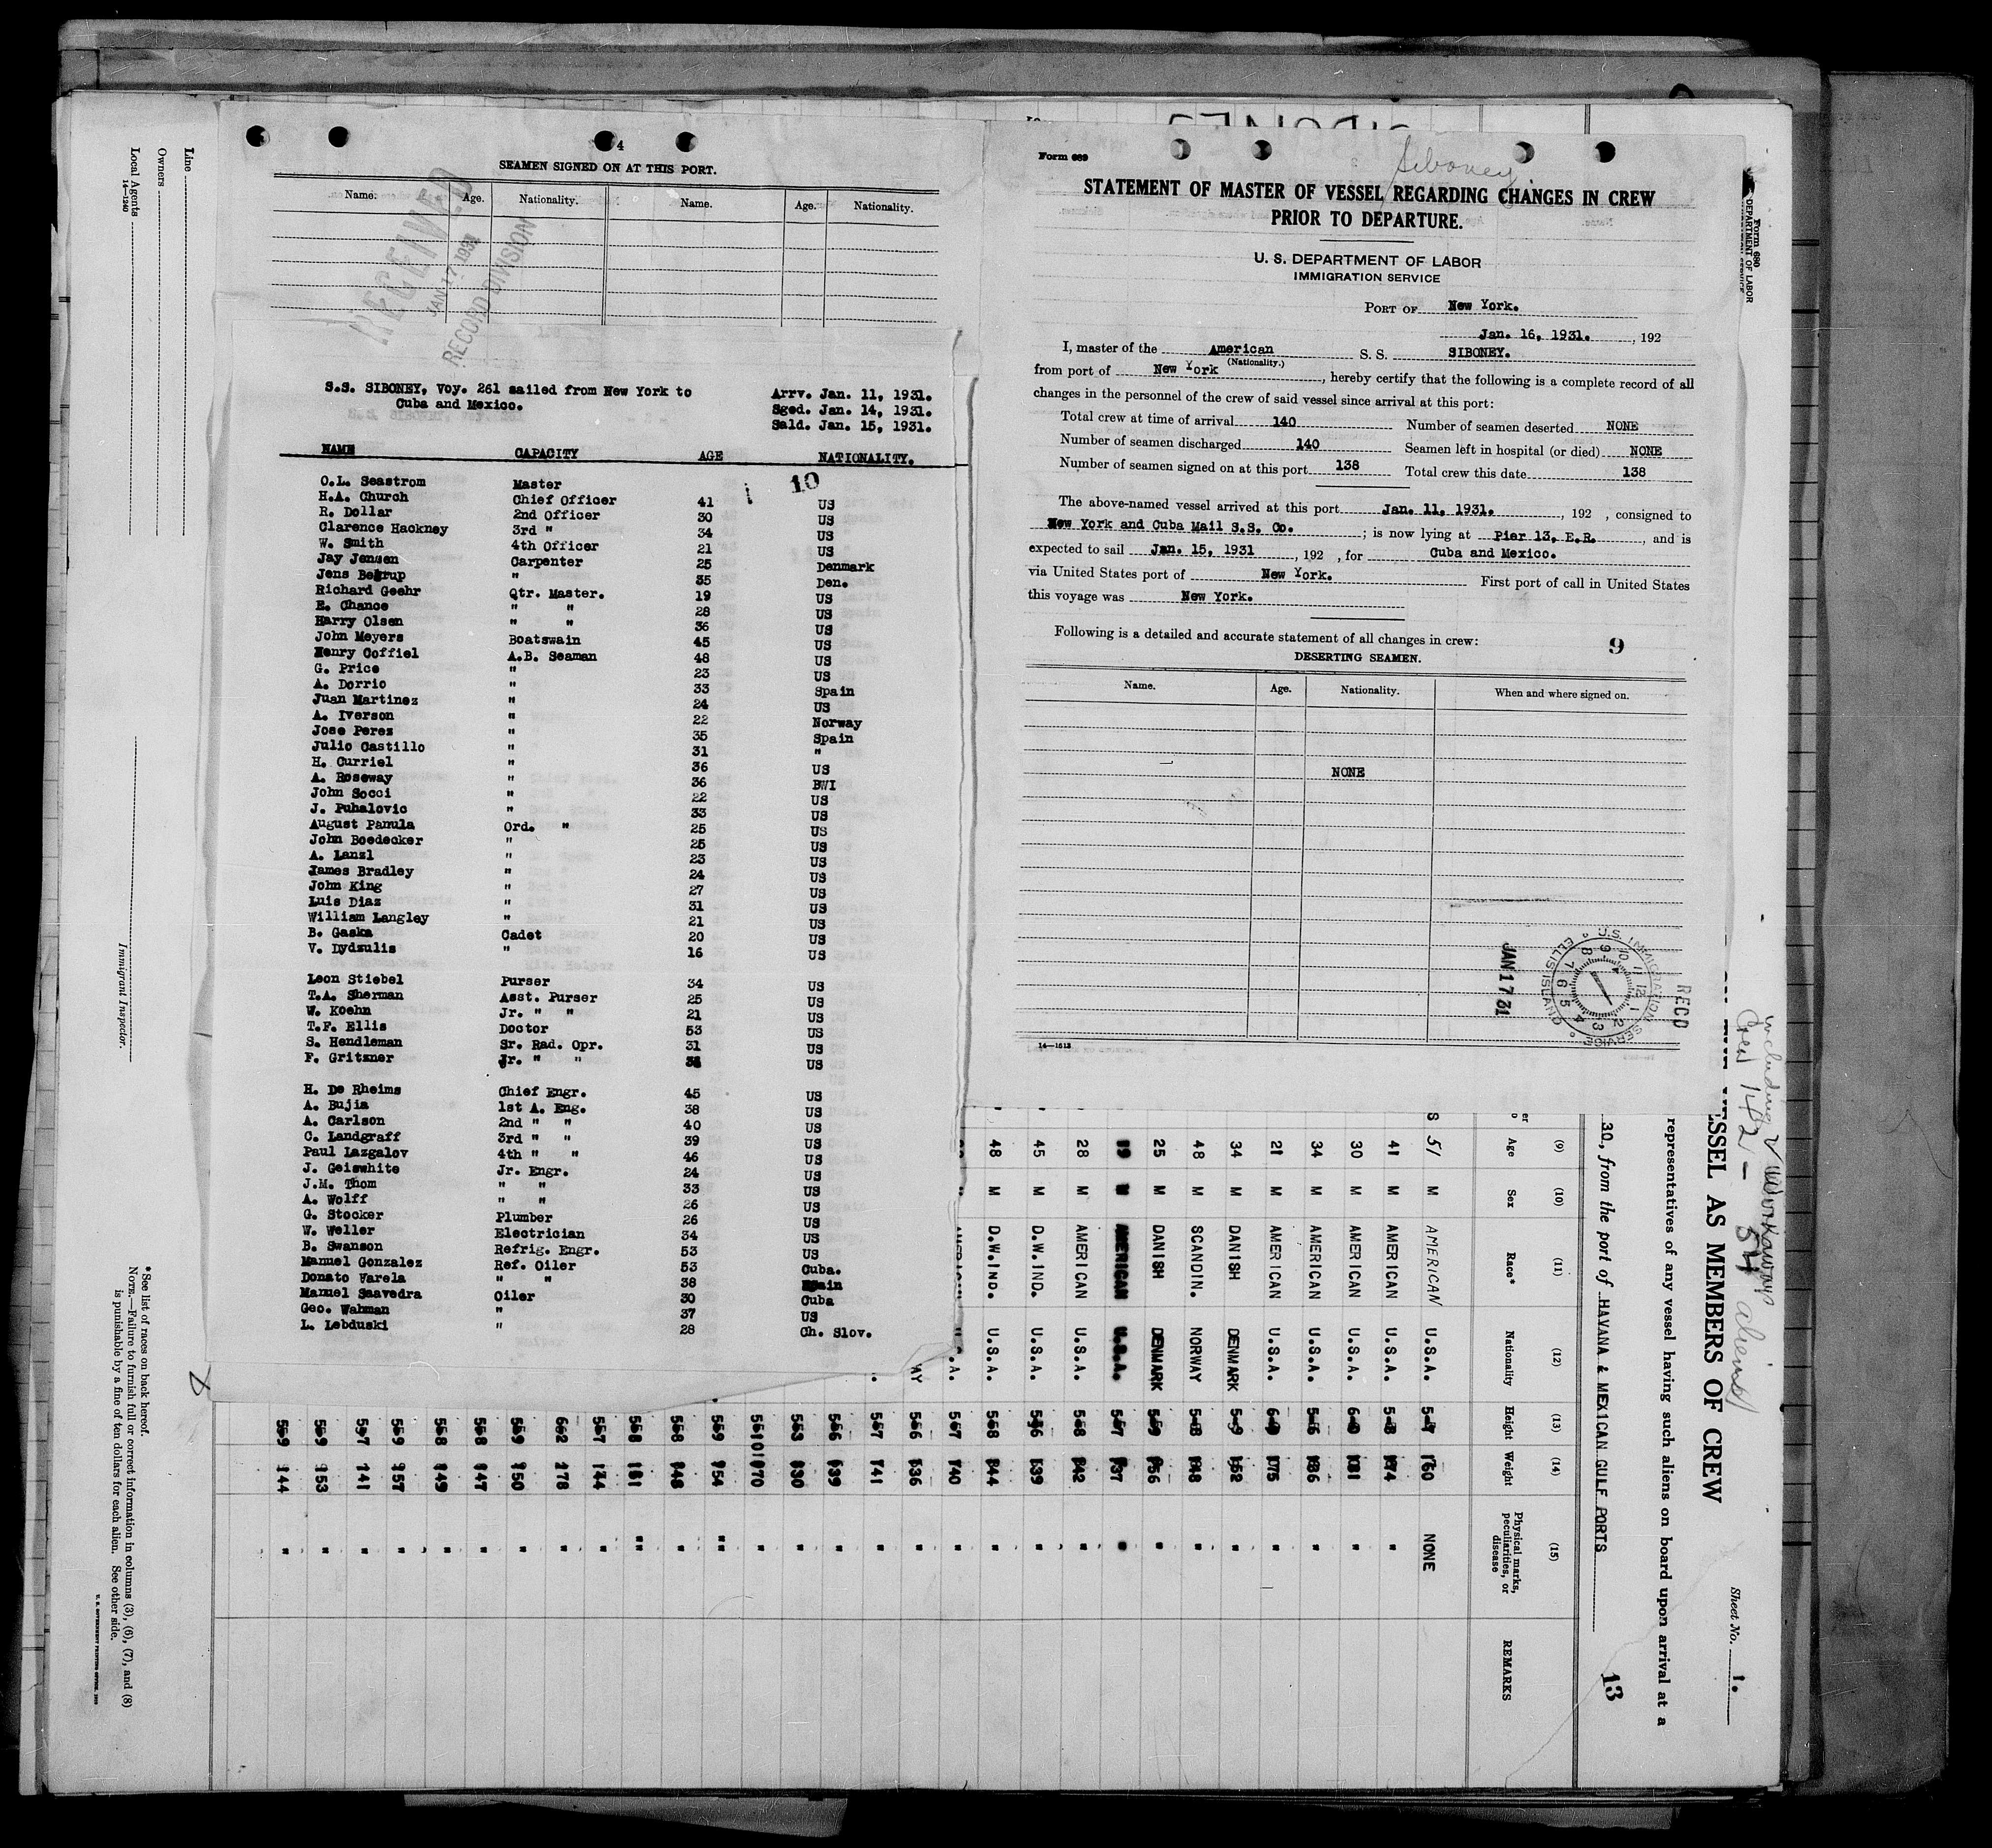 4
SEAMEN SIGNED ON AT THIS PORT.
Name. Age. Nationality. Name. Age. Nationality.
RECEIVED
JAN 17 1931
RECORD DIVISION
S.S. SIBONEY, Voy. 261 sailed from New York to
Cuba and Mexico.
Arrv. Jan. 11, 1931.
Sged. Jan. 14, 1931.
Sald. Jan. 15, 1931.
NAME CAPACITY AGE NATIONALITY.
10
O.L. Seastrom Master
H.A. Church Chief Officer 41 US
R. Dollar 2nd Officer 30 US
Clarence Hackney 3rd " 34 US
W. Smith 4th Officer 21 US
Jay Jensen Carpenter 25 Denmark
Jens Begrup " 35 Den.
Richard Goehr Qtr. Master. 19 US
E. Chance " " 28 US
Harry Olsen " " 36 US
John Meyers Boatswain 45 US
Henry Coffiel A.B. Seaman 48 US
G. Price " 23 US
A. Dorrio " 33 Spain
Juan Martinez " 24 US
A. Iverson " 22 Norway
Jose Perez " 35 Spain
Julio Castillo " 31 "
H. Curriel " 36 US
A. Roseway " 36 BWI
John Socci " 22 US
J. Puhalovic " 33 US
August Panula Ord. " 25 US
John Boedecker " 25 US
A. Lanzl " 23 US
James Bradley " 24 US
John King " 27 US
Luis Diaz " 31 US
William Langley " 21 US
B. Gaska Cadet 20 US
V. Dydzulis " 16 US
Leon Stiebel Purser 34 US
T.A. Sherman Asst. Purser 25 US
W. Koehn Jr. " " 21 US
T.F. Ellis Doctor 53 US
S. Hendleman Sr. Rad. Opr. 31 US
F. Gritzner Jr. " " US
H. De Rheims Chief Engr. 45 US
A. Bujia 1st A. Eng. 38 US
A. Carlson 2nd " " 40 US
C. Landgraff 3rd " " 39 US
Paul Lazgalov 4th " " 46 US
J. Geiswhite Jr. Engr. 24 US
J.M. Thom " " 33 US
A. Wolff " " 26 US
G. Stocker Plumber 26 US
W. Weller Electrician 34 US
B. Swanson Refrig. Engr. 53 US
Manuel Gonzalez Ref. Oiler 53 Cuba.
Donato Varela " " 38 Spain
Manuel Saavedra Oiler 30 Cuba
Geo. Wahman " 37 US
L. Lebduski " 28 Ch. Slov.
Form 689
Siboney
STATEMENT OF MASTER OF VESSEL REGARDING CHANGES IN CREW
PRIOR TO DEPARTURE.
U. S. DEPARTMENT OF LABOR
IMMIGRATION SERVICE
PORT OF New York.
Jan. 16, 1931. , 192
I, master of the American S. S. SIBONEY.
(Nationality.)
from port of New York , hereby certify that the following is a complete record of all
changes in the personnel of the crew of said vessel since arrival at this port:
Total crew at time of arrival 140 Number of seamen deserted NONE
Number of seamen discharged 140 Seamen left in hospital (or died) NONE
Number of seamen signed on at this port 138 Total crew this date 138
The above-named vessel arrived at this port Jan. 11, 1931. , 192 , consigned to
New York and Cuba Mail S.S. Co. ; is now lying at Pier 13, E.R. , and is
expected to sail Jan. 15, 1931 , 192 , for Cuba and Mexico.
via United States port of New York. First port of call in United States
this voyage was New York.
Following is a detailed and accurate statement of all changes in crew:
9
DESERTING SEAMEN.
Name. Age. Nationality. When and where signed on.
NONE
JAN 17 31
U.S. IMMIGRATION SERVICE
ELLIS ISLAND
RECD
14—1613
Form 680
DEPARTMENT OF LABOR
Sheet No. 1.
including 2 workaways
Crew 142 - 54 aliens
ESSEL AS MEMBERS OF CREW
representatives of any vessel having such aliens on board upon arrival at a
30, from the port of HAVANA & MEXICAN GULF PORTS
13
(9) (10) (11) (12) (13) (14) (15)
Age Sex Race* Nationality Height Weight Physical marks, peculiarities, or disease REMARKS
51 M AMERICAN U.S.A. 5-7 160 NONE
41 M AMERICAN U.S.A. 5-8 174 "
30 M AMERICAN U.S.A. 6-0 181 "
34 M AMERICAN U.S.A. 5-5 136 "
21 M AMERICAN U.S.A. 6-0 175 "
34 M DANISH DENMARK 5-9 152 "
48 M SCANDIN. NORWAY 5-8 148 "
25 M DANISH DENMARK 5-9 156 "
19 M AMERICAN U.S.A. 5-7 137 "
28 M AMERICAN U.S.A. 5-8 142 "
45 M D.W.IND. U.S.A. 5-6 139 "
48 M D.W.IND. U.S.A. 5-8 144 "
Line
Owners
Local Agents
14—1240
Immigrant Inspector.
*See list of races on back hereof.
NOTE.—Failure to furnish full or correct information in columns (3), (6), (7), and (8)
is punishable by a fine of ten dollars for each alien. See other side.